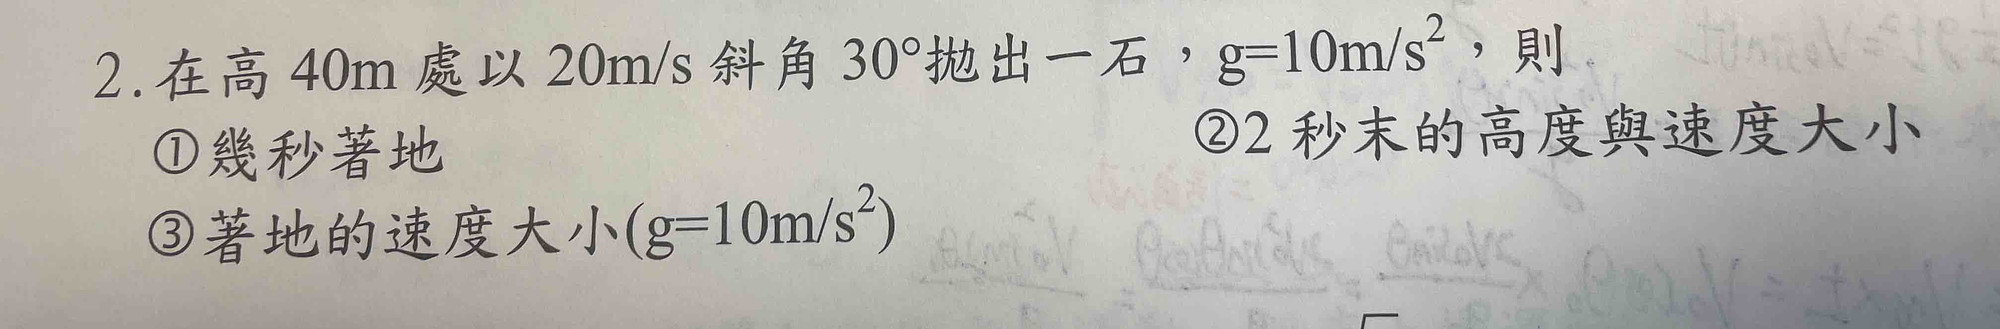 2.在高 40m 處以 20m/s 斜角 30°拋出一石，g=10m/s²，則
①幾秒著地 ②2 秒末的高度與速度大小
③著地的速度大小(g=10m/s²)